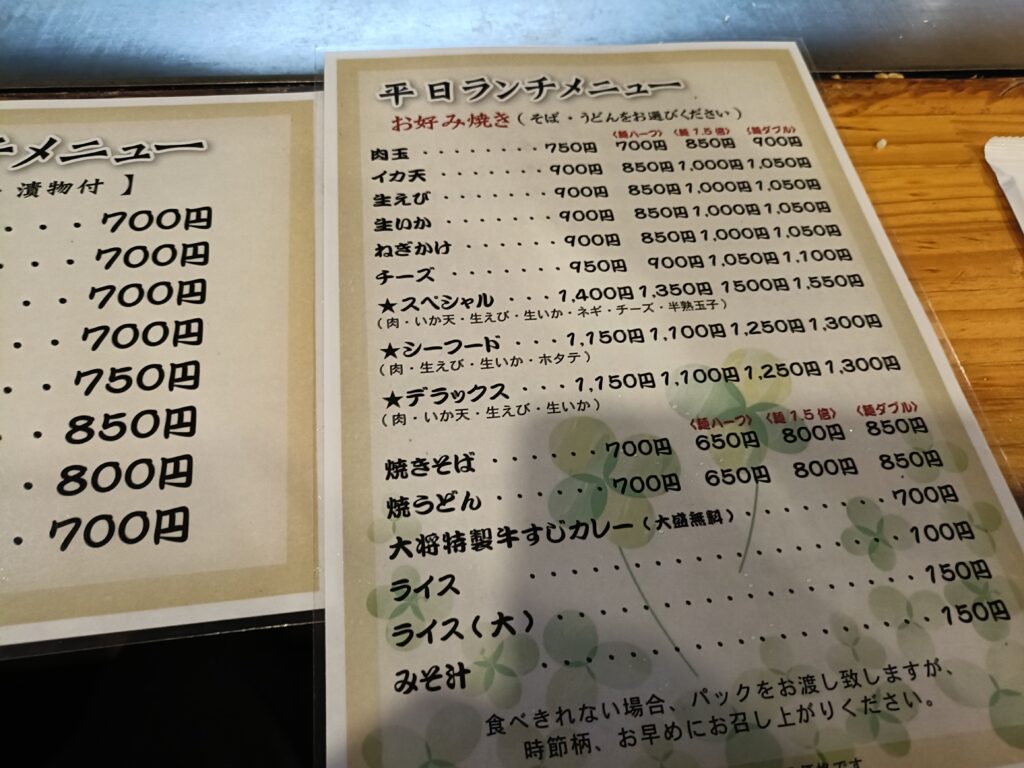 チメニュー
漬物付 】
・・・700円
・・・700円
・・・700円
・・700円
・・・750円
・・850円
・800円
・700円
平日ランチメニュー
お好み焼き(そば・うどんをお選びください)
〈麺ハーフ〉 〈麺1.5倍〉 〈麺ダブル〉
肉玉 ・・・・・・・・ 750円 700円 850円 900円
イカ天 ・・・・・・・ 900円 850円 1,000円 1,050円
生えび ・・・・・・・ 900円 850円 1,000円 1,050円
生いか ・・・・・・・ 900円 850円 1,000円 1,050円
ねぎかけ ・・・・・・ 900円 850円 1,000円 1,050円
チーズ ・・・・・・・ 950円 900円 1,050円 1,100円
★スペシャル ・・・1,400円 1,350円 1500円 1,550円
(肉・いか天・生えび・生いか・ネギ・チーズ・半熟玉子)
★シーフード ・・・1,150円 1,100円 1,250円 1,300円
(肉・生えび・生いか・ホタテ)
★デラックス ・・・1,150円 1,100円 1,250円 1,300円
(肉・いか天・生えび・生いか)
〈麺ハーフ〉 〈麺1.5倍〉 〈麺ダブル〉
焼きそば ・・・・・・700円 650円 800円 850円
焼うどん ・・・・・・700円 650円 800円 850円
大将特製牛すじカレー(大盛無料)・・・・・・・・700円
ライス ・・・・・・・・・・・・・・・・100円
ライス(大) ・・・・・・・・・・・・・・150円
みそ汁 ・・・・・・・・・・・・・・・・150円
食べきれない場合、パックをお渡し致しますが、
時節柄、お早めにお召し上がりください。